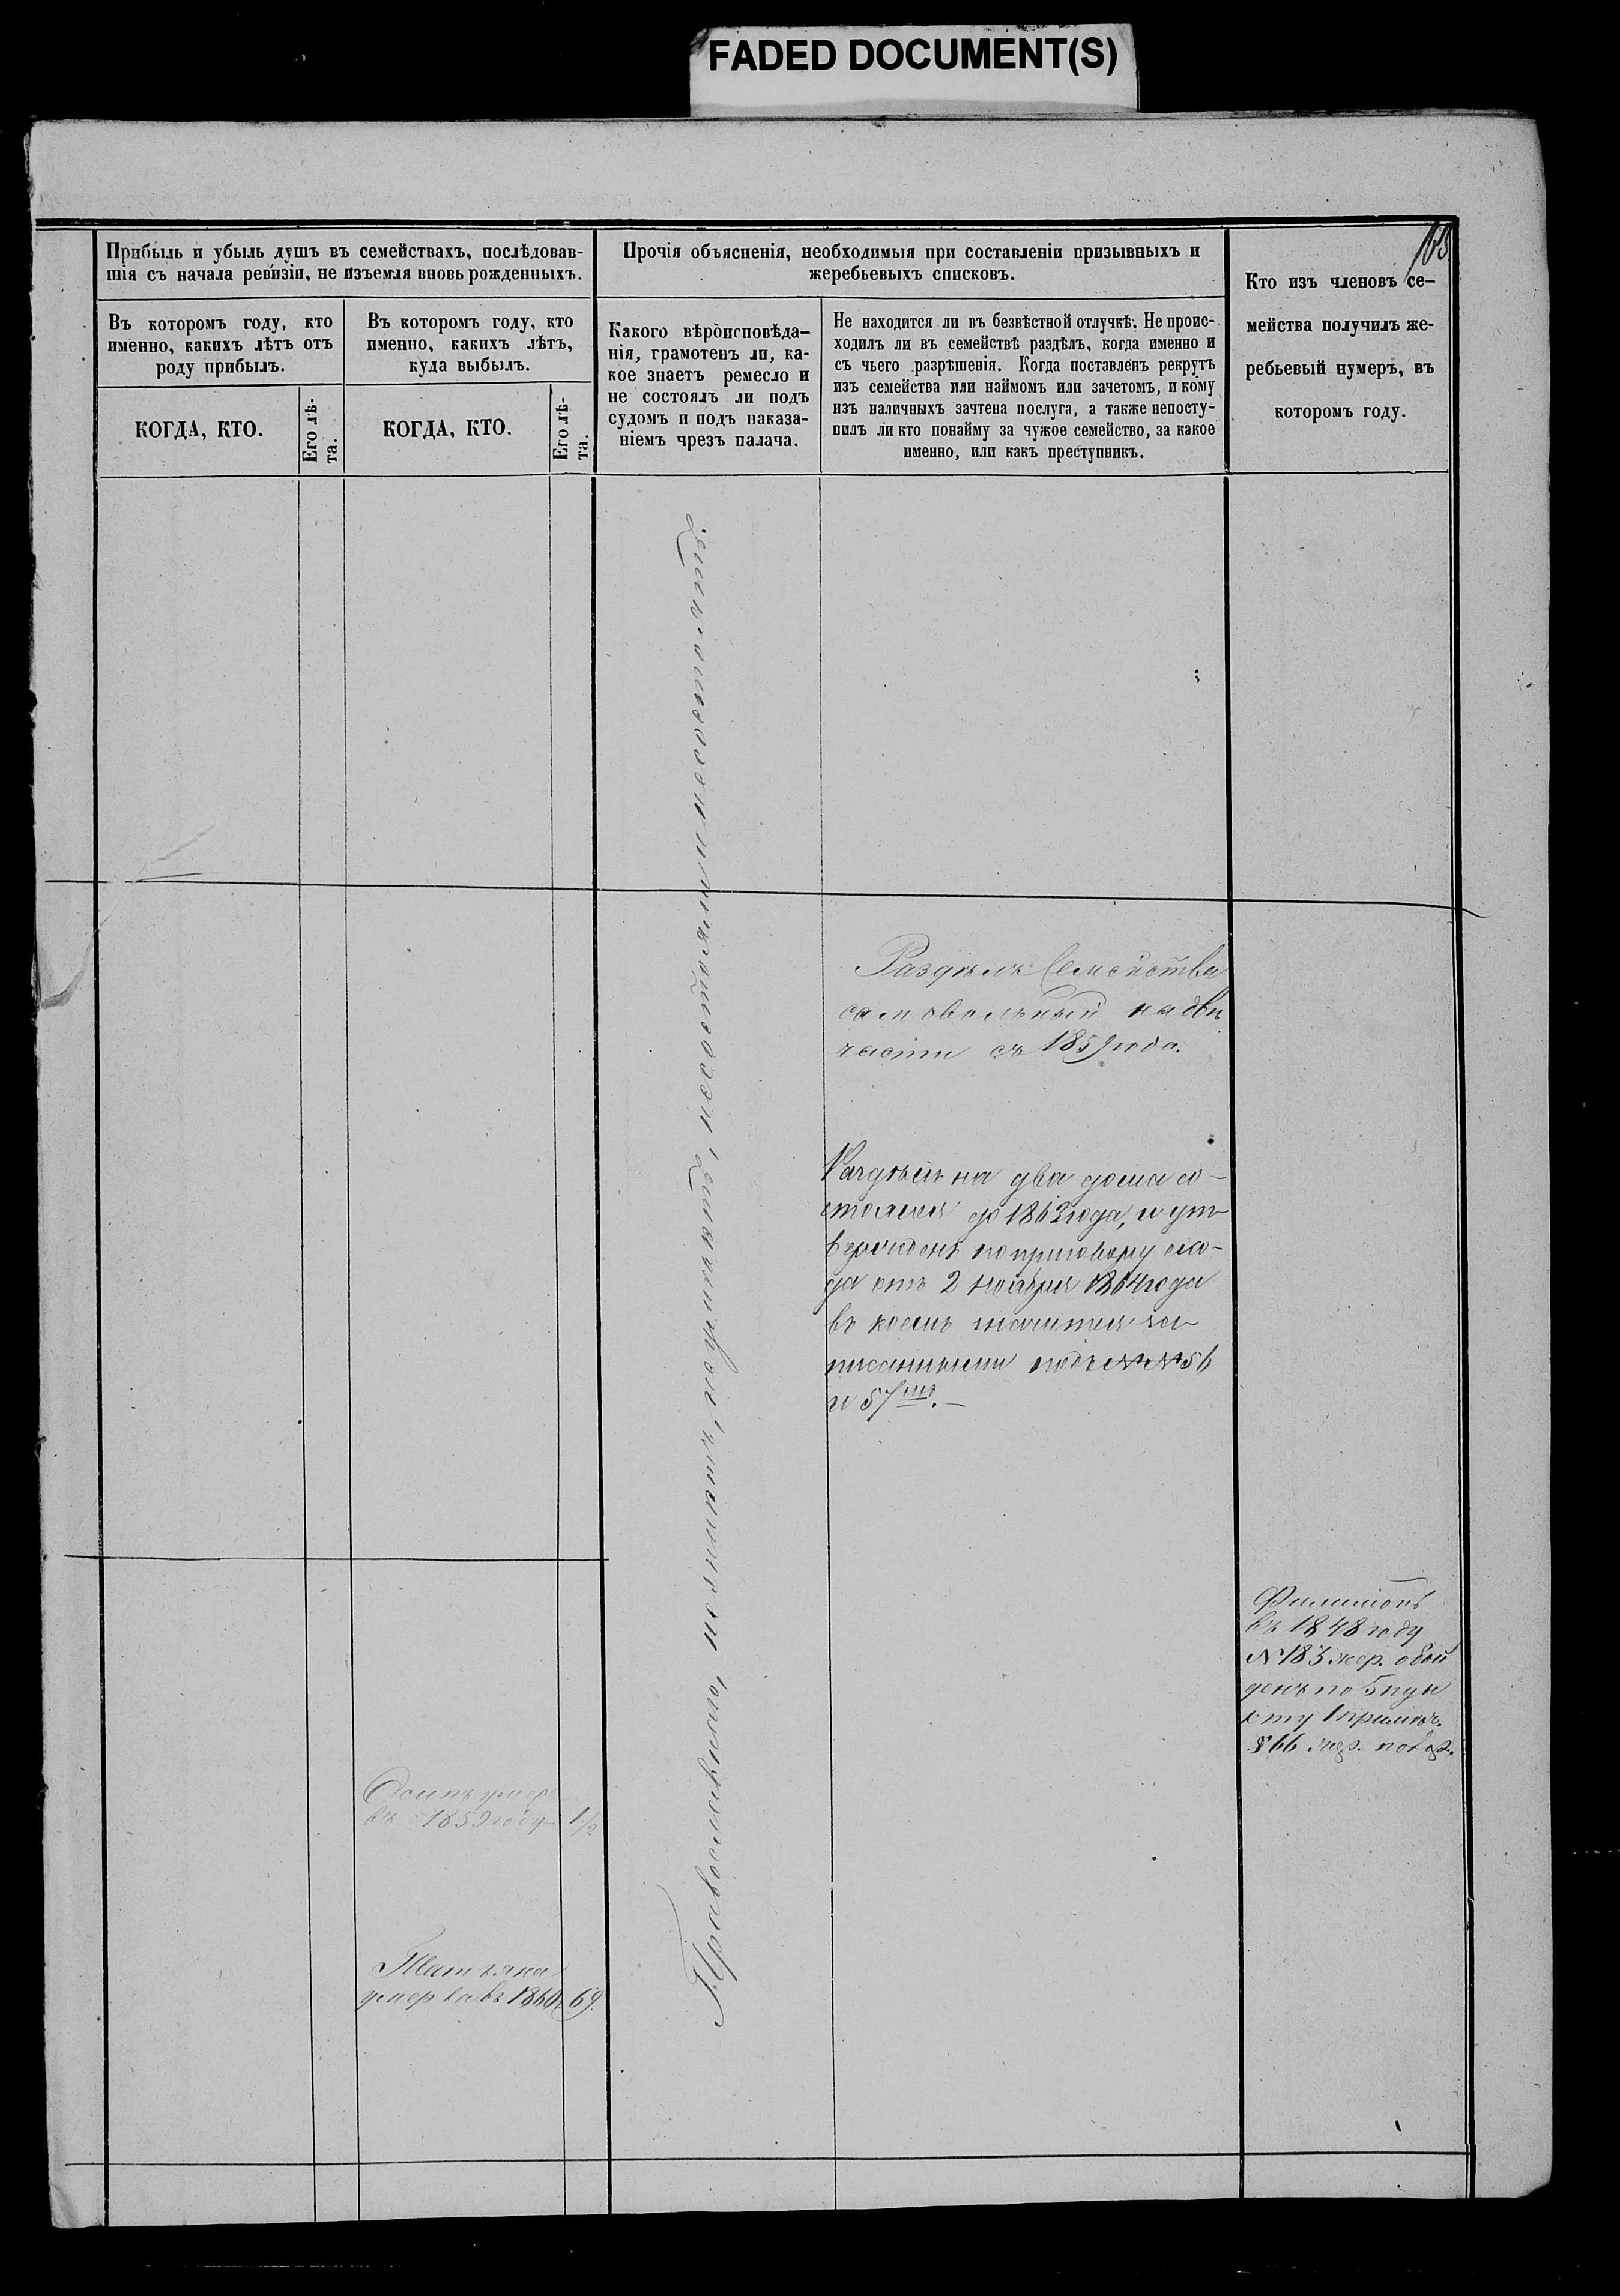 FADED DOCUMENT(S)
Прибыль и убыль душъ въ семействахъ, послѣдовав-
шія съ начала ревизіи, не изъемля вновь рожденныхъ.
Въ которомъ году, кто
именно, какихъ лѣтъ отъ
роду прибылъ.
КОГДА, КТО.
Его лѣ-
та.
Въ которомъ году, кто
именно, какихъ лѣтъ,
куда выбылъ.
КОГДА, КТО.
Его лѣ-
та.
Прочія объясненія, необходимыя при составленіи призывныхъ и
жеребьевыхъ списковъ.
Какого вѣроисповѣда-
нія, грамотенъ ли, ка-
кое знаетъ ремесло и
не состоялъ ли подъ
судомъ и подъ наказа-
ніемъ чрезъ палача.
Не находится ли въ безвѣстной отлучкѣ. Не проис-
ходилъ ли въ семействѣ раздѣлъ, когда именно и
съ чьего разрѣшенія. Когда поставленъ рекрутъ
изъ семейства или наймомъ или зачетомъ, и кому
изъ наличныхъ зачтена послуга, а также непосту-
пилъ ли кто понайму за чужое семейство, за какое
именно, или какъ преступникъ.
Кто изъ членовъ се-
мейства получилъ же-
ребьевый нумеръ, въ
которомъ году.
Раздѣлъ Семейства
самовольный на двѣ
части съ 1859 года.
Раздѣлъ на два дома со-
стоялся до 1863 года, и ут-
вержденъ по приговору схо-
да отъ 2 Ноября 1864 года
въ коемъ значится за-
писанными подъ №№ 56
и 57мъ.–
Филипъ
въ 1848 году
№ 183 жер. обой
денъ по 5 пун
кту 1 примѣч.
§ 66 жер. поряд.
Осипъ умеръ
въ 1859 году 1/2
Татьяна
умерла въ 1860 69.
Православнаго,